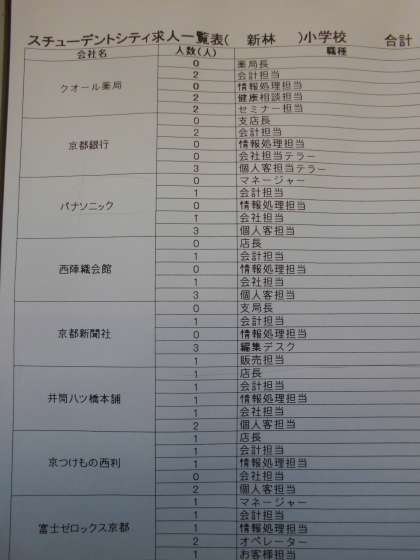 スチューデントシティ求人一覧表( 新林 )小学校 合計
会社名 人数(人) 職種
クオール薬局
0 薬局長
2 会計担当
0 情報処理担当
2 健康相談担当
2 セミナー担当
京都銀行
0 支店長
2 会計担当
0 情報処理担当
0 会社担当テラー
3 個人客担当テラー
パナソニック
0 マネージャー
1 会計担当
0 情報処理担当
1 会社担当
3 個人客担当
西陣織会館
0 店長
1 会計担当
0 情報処理担当
1 会社担当
3 個人客担当
京都新聞社
0 支局長
1 会計担当
0 情報処理担当
3 編集デスク
1 販売担当
井筒八ツ橋本舗
1 店長
1 会計担当
1 情報処理担当
1 会社担当
2 個人客担当
京つけもの西利
1 店長
1 会計担当
1 情報処理担当
0 会社担当
2 個人客担当
富士ゼロックス京都
1 マネージャー
1 会計担当
1 情報処理担当
2 オペレーター
1 お客様担当